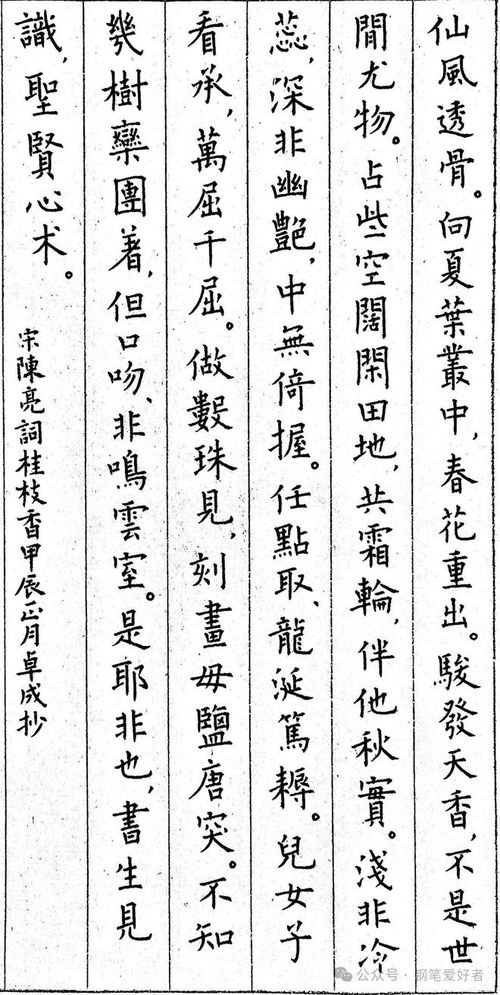 仙風透骨。向夏葉叢中，春花重出。駿發天香，不是世
間尤物。占些空闊閑田地，共霜輪，伴他秋實。淺非冷
蕊，深非幽艷，中無倚握。任點取、龍涎篤耨。兒女子
看承，萬屈千屈。做數珠見，刻畫毋鹽唐突。不知
幾樹欒團著，但口吻、非鳴雲室。是耶非也，書生見
識，聖賢心术。
宋陳亮詞桂枝香甲辰正月卓成抄
公众号·钢笔爱好者